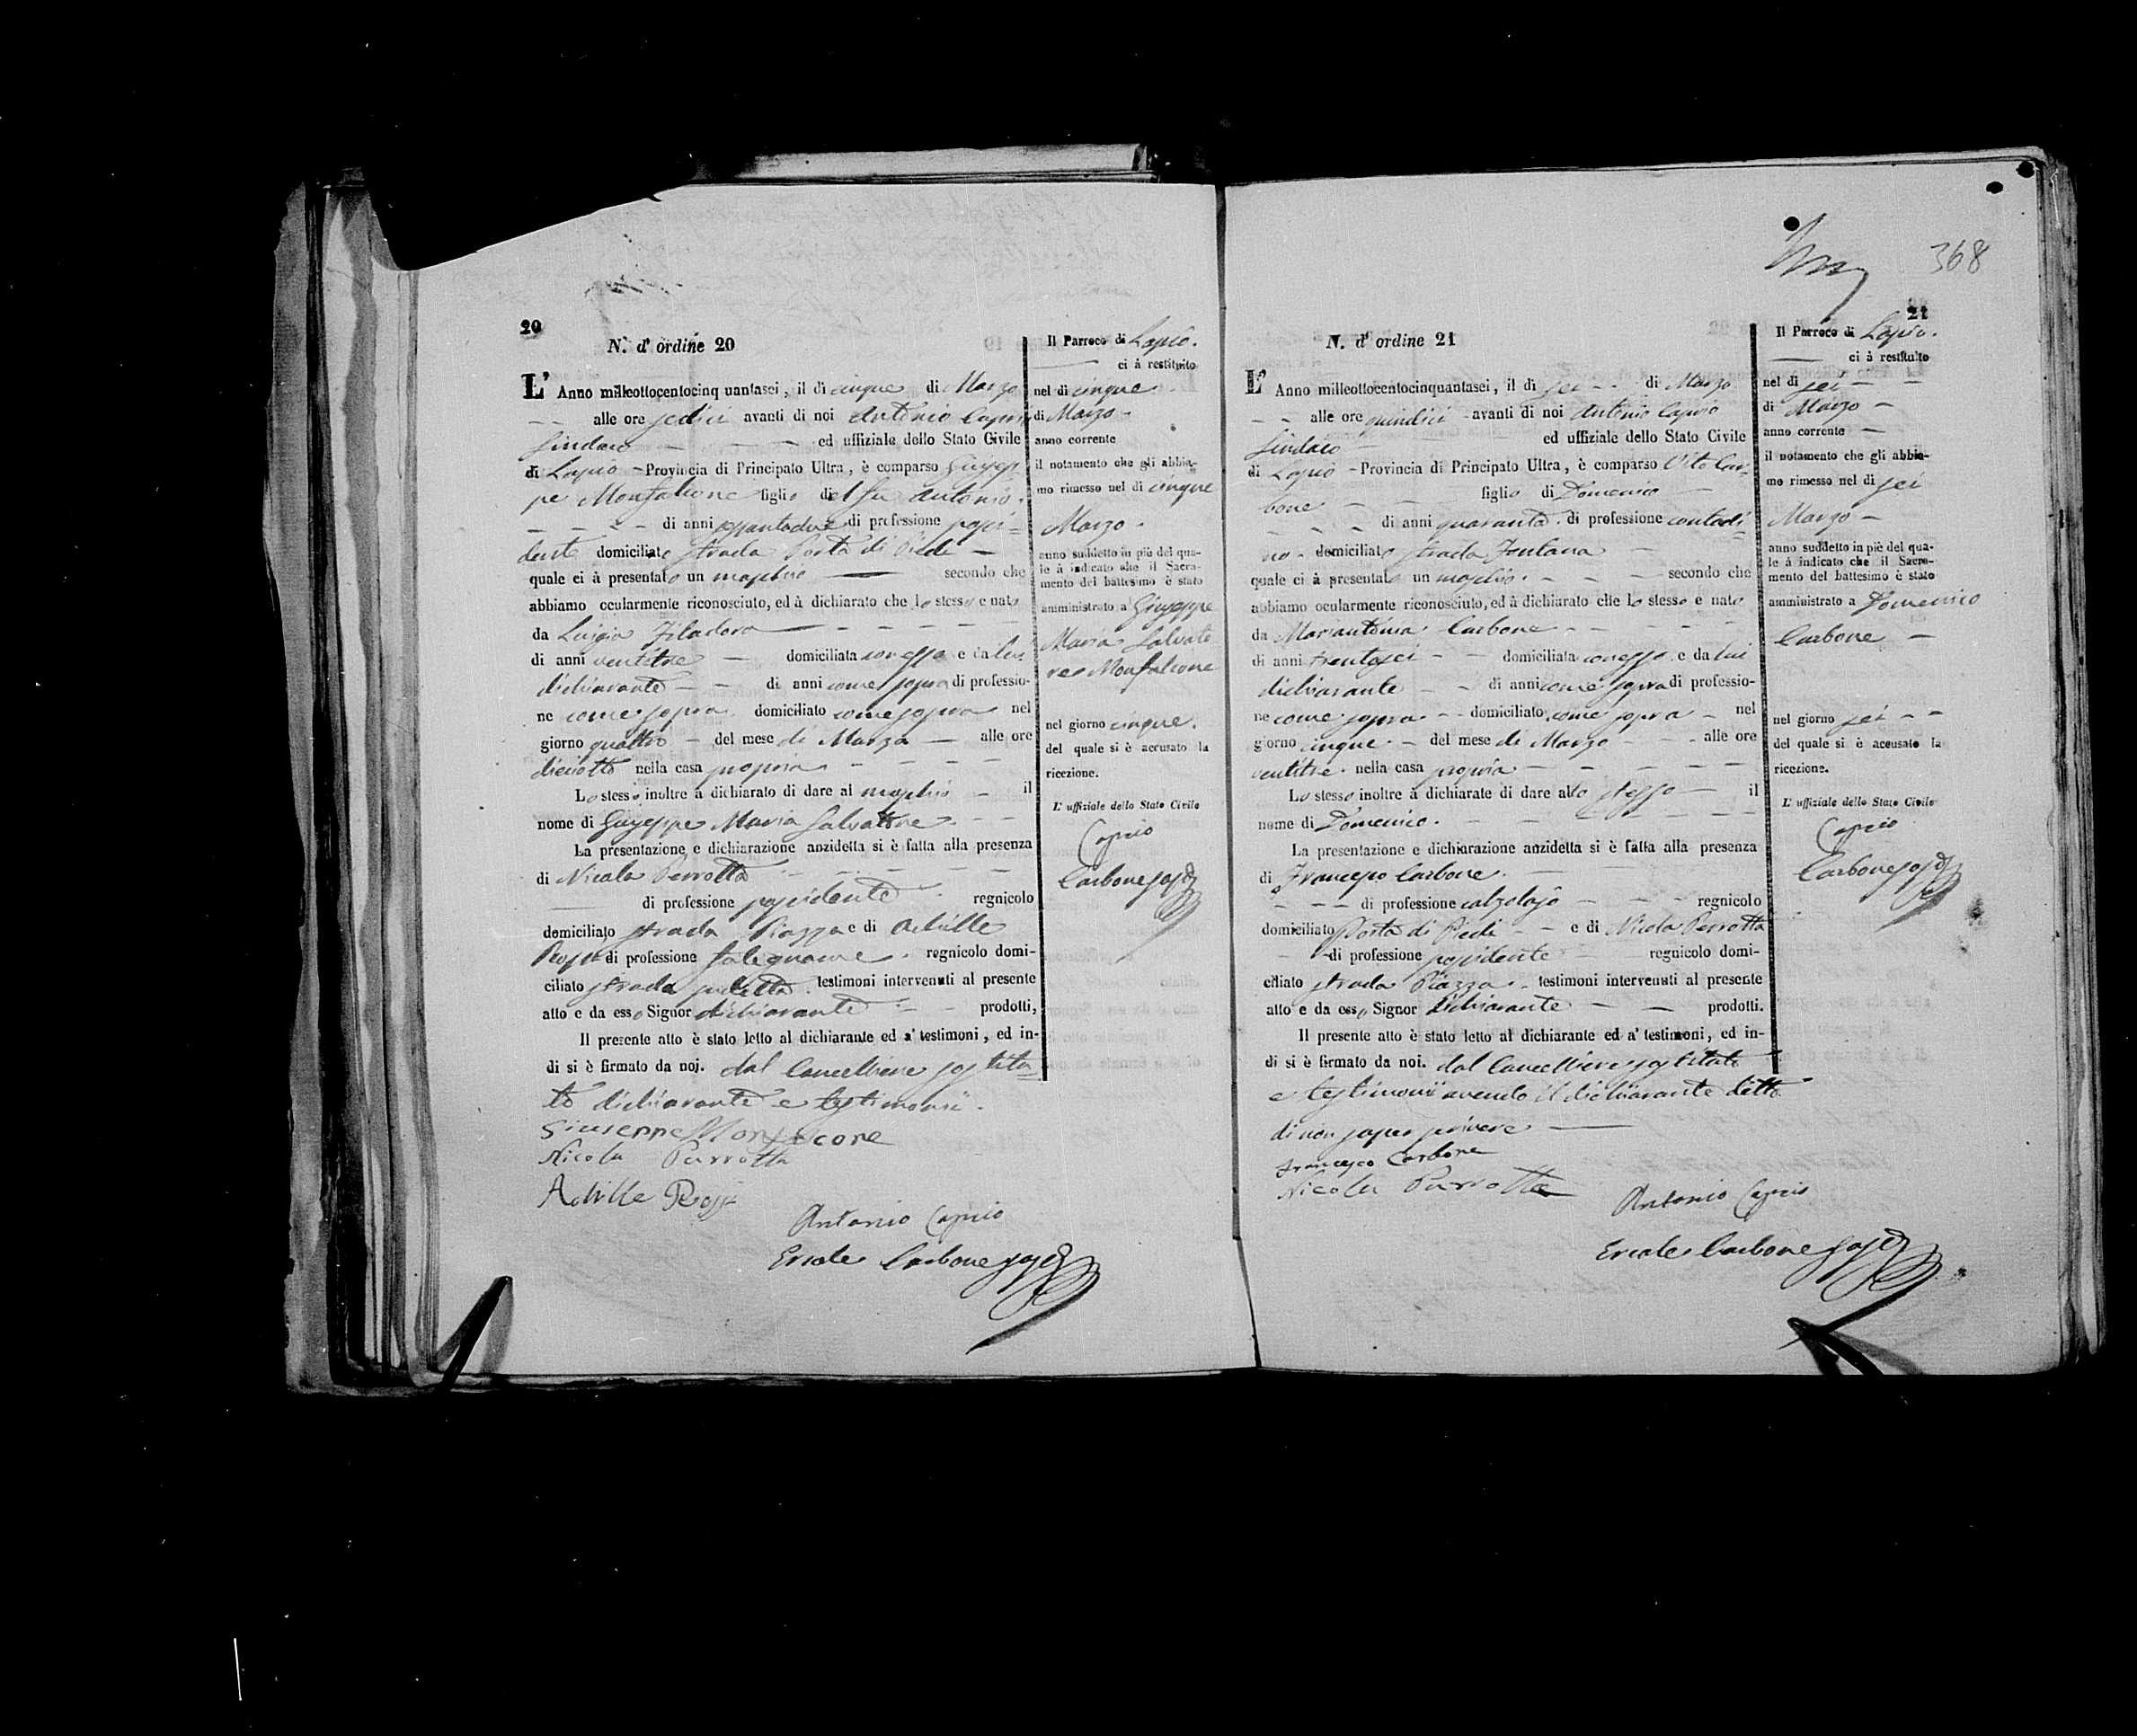 20
N. d' ordine 20
L' Anno milleottocentocinquantasei, il di cinque di Marzo
alle ore sedici avanti di noi Antonio Caprio
Sindaco ed uffiziale dello Stato Civile
di Lapio Provincia di Principato Ultra, è comparso Giusep-
pe Monfalcone figlio del fu Antonio
di anni di professione possi-
dente domiciliato strada Porta di Piedi
quale ci à presentato un maschio secondo che
abbiamo ocularmente riconosciuto, ed à dichiarato che lo stesso e nato
da Luigia Filadoro
di anni ventitre domiciliata con esso e da lui
dichiarante di anni come sopra di professio-
ne come sopra domiciliato come sopra nel
giorno quattro del mese di Marzo alle ore
dieciotto nella casa propria
Lo stesso inoltre à dichiarato di dare al maschio il
nome di Giuseppe Maria Salvatore
La presentazione e dichiarazione anzidetta si è fatta alla presenza
di Nicola Perrotta
di professione possidente regnicolo
domiciliato strada Piazza e di Achille
Rossi di professione falegname regnicolo domi-
ciliato strada sudetta testimoni intervenuti al presente
atto e da esso Signor dichiarante prodotti,
Il presente atto è stato letto al dichiarante ed a' testimoni, ed in-
di si è firmato da noj. dal Cancelliere sostitu
to dichiarante e testimonii.
Giuseppe Monfalcone
Nicola Perrotta
Achille Rossi
Antonio Caprio
Ercole Carbone sost
Il Parroco di Lapio.
ci à restituito
nel di cinque
di Marzo
anno corrente
il notamento che gli abbia-
mo rimesso nel di cinque
Marzo
anno suddetto in piè del qua-
le à indicato che il Sacra-
mento del battesimo è stato
amministrato a Giuseppe
Maria Salvato
re Monfalcone
nel giorno cinque.
del quale si è accusato la
ricezione.
L' uffiziale dello Stato Civile
Caprio
Carbone sost
368
21
N. d' ordine 21
L' Anno milleottocentocinquantasei, il di sei di Marzo
alle ore quindici avanti di noi Antonio Caprio
Sindaco ed uffiziale dello Stato Civile
di Lapio Provincia di Principato Ultra, è comparso Vito Car-
bone figlio di Domenico
di anni quaranta di professione contadi
no domiciliato strada Fontana
quale ci à presentato un maschio secondo che
abbiamo ocularmente riconosciuto, ed à dichiarato che lo stesso e nato
da Mariantonia Carbone
di anni trentasei domiciliata con esso e da lui
dichiarante di anni come sopra di professio-
ne come sopra domiciliato come sopra nel
giorno cinque del mese di Marzo alle ore
ventitre nella casa propria
Lo stesso inoltre à dichiarato di dare allo stesso il
nome di Domenico.
La presentazione e dichiarazione anzidetta si è fatta alla presenza
di Francesco Carbone
di professione calzolajo regnicolo
domiciliato Porta di Piedi e di Nicola Perrotta
di professione possidente regnicolo domi-
ciliato strada Piazza testimoni intervenuti al presente
atto e da esso Signor dichiarante prodotti.
Il presente atto è stato letto al dichiarante ed a' testimoni, ed in-
di si è firmato da noi. dal Cancelliere sostituto
e testimonii avendo il dichiarante detto
di non saper scrivere
Francesco Carbone
Nicola Perrotta
Antonio Caprio
Ercole Carbone sost
Il Parroco di Lapio.
ci à restituito
nel di sei
di Marzo
anno corrente
il notamento che gli abbia-
mo rimesso nel di sei
Marzo
anno suddetto in piè del qua-
le à indicato che il Sacra-
mento del battesimo è stato
amministrato a Domenico
Carbone
nel giorno sei
del quale si è accusato la
ricezione.
L' uffiziale dello Stato Civile
Caprio
Carbone sost